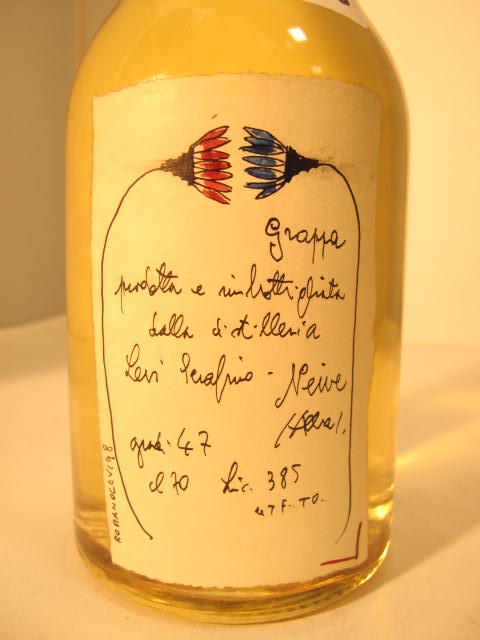 Grappa
prodotta e imbottigliata
dalla distilleria
Levi Serafino - Neive
(Alba).
gradi 47
cl 70 Lic. 385
UTF. TO.
ROMANO LEVI 98